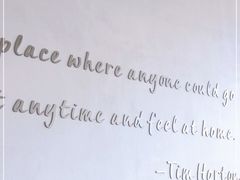 place where anyone could go
t anytime and feel at home.
-Tim Horton